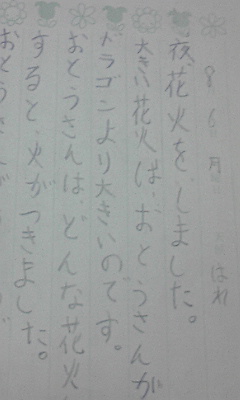 8 6 月 はれ
夜、花火を、しました。
大きい花火は、おとうさんが
ドラゴンより大きいのです。
おとうさんは、どんな花火
すると、火がつきました。
おとうさんが